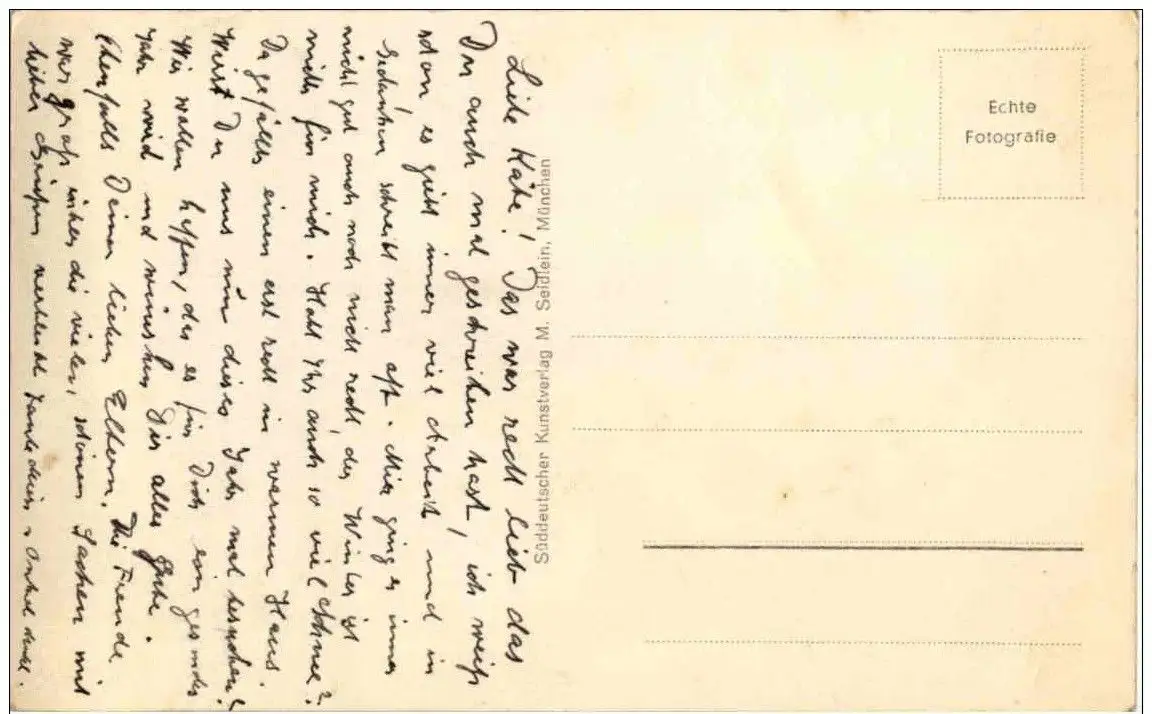 Liebe Käte! Das war recht lieb das
Du auch mal geschrieben hast, ich weiß
schon es giebt immer viel Arbeit und in
Gedanken schreibt man oft. Mir ging es immer
nicht gut auch noch nicht recht, der Winter ist
nichts für mich. Habt Ihr auch so viel Schnee?
Da gefällts einem erst recht in warmen Haus.
Wirst Du uns nun dieses Jahr mal besuchen?
Wir wollen hoffen, das es für Dich ein gesundes
Jahr wird und wünschen Dir alles Gute.
Ebenfalls Deinen lieben Eltern. Die Freude
war groß über die vielen, schönen Sachen mit
lieben Grüßen verbleibt Tante u. Onkel
Süddeutscher Kunstverlag M. Seidlein, München
Echte
Fotografie